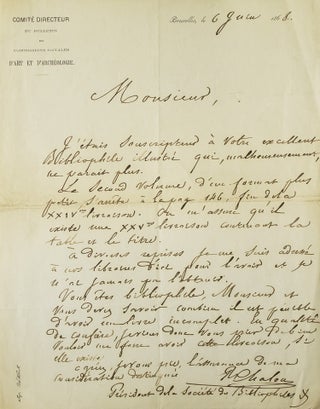 COMITÉ DIRECTEUR
DU BULLETIN
DES
COMMISSIONS ROYALES
D'ART ET D'ARCHÉOLOGIE.
Bruxelles, le 6 Juin 1868.
Monsieur,
J'étais souscripteur à votre excellent
Bibliophile illustré qui, malheureusement,
ne parait plus.
Le second volume, d'un format plus
petit s'arrête à la page 146, fin de la
XXIVe livraison. On m'assure qu'il
existe une XXVe livraison contenant la
table et le titre.
à diverses reprises je me suis adressé
à nos libraires d'ici pour l'avoir et je
n'ai jamais pu l'obtenir.
Vous êtes bibliophile, Monsieur et
vous devez savoir combien il est pénible
d'avoir un livre incomplet. En qualité
de confrère, je viens donc vous prier de bien
vouloir me faire avoir cette livraison, si
elle existe.
Agréez, je vous prie, l'assurance de ma
considération distinguée
R Chalon
Président de la Société des Bibliophiles